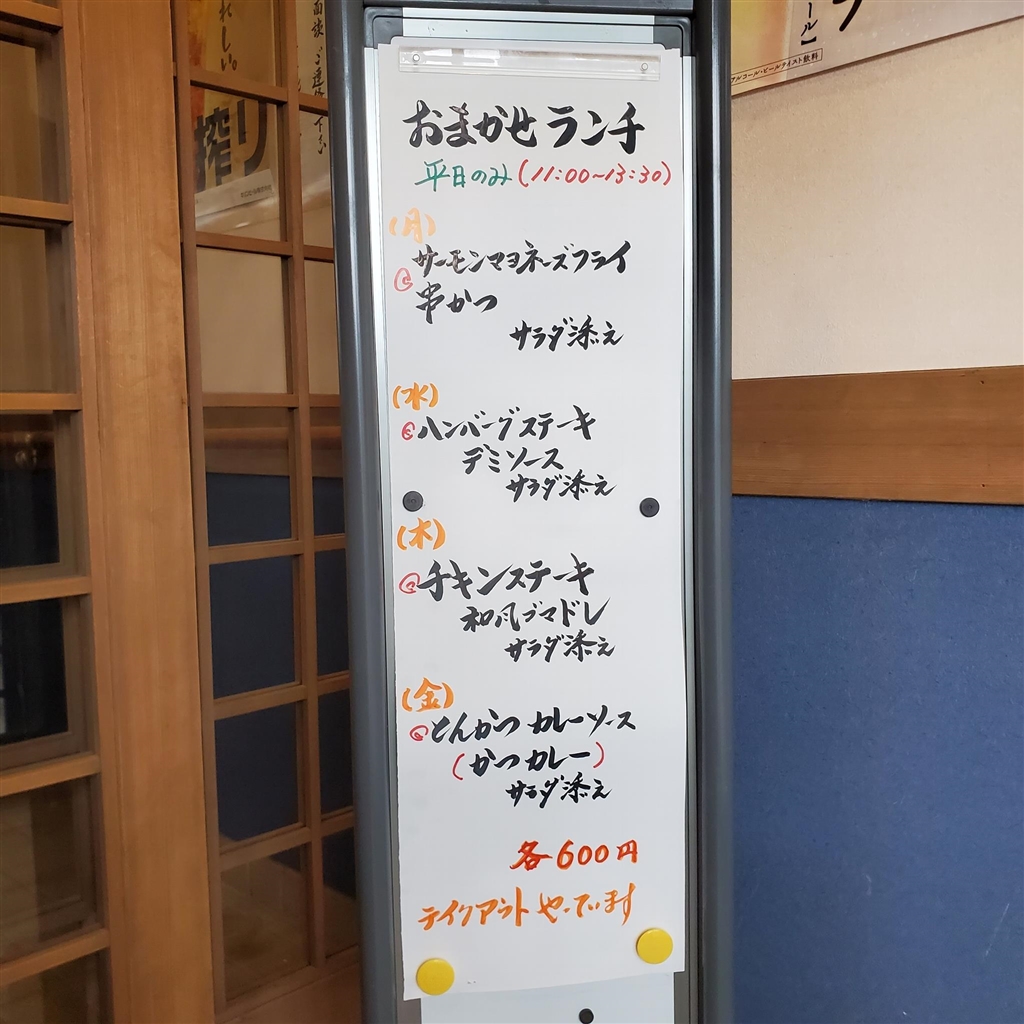 おまかせランチ
平日のみ(11:00~13:30)
(月)
サーモンマヨネーズフライ
串かつ
サラダ添え
(水)
ハンバーグステーキ
デミソース
サラダ添え
(木)
チキンステーキ
和風ゴマドレ
サラダ添え
(金)
とんかつ カレーソース
(かつカレー)
サラダ添え
各600円
テイクアウトやっています
搾り
れしい。
ール】
アルコール・ビールテイスト飲料